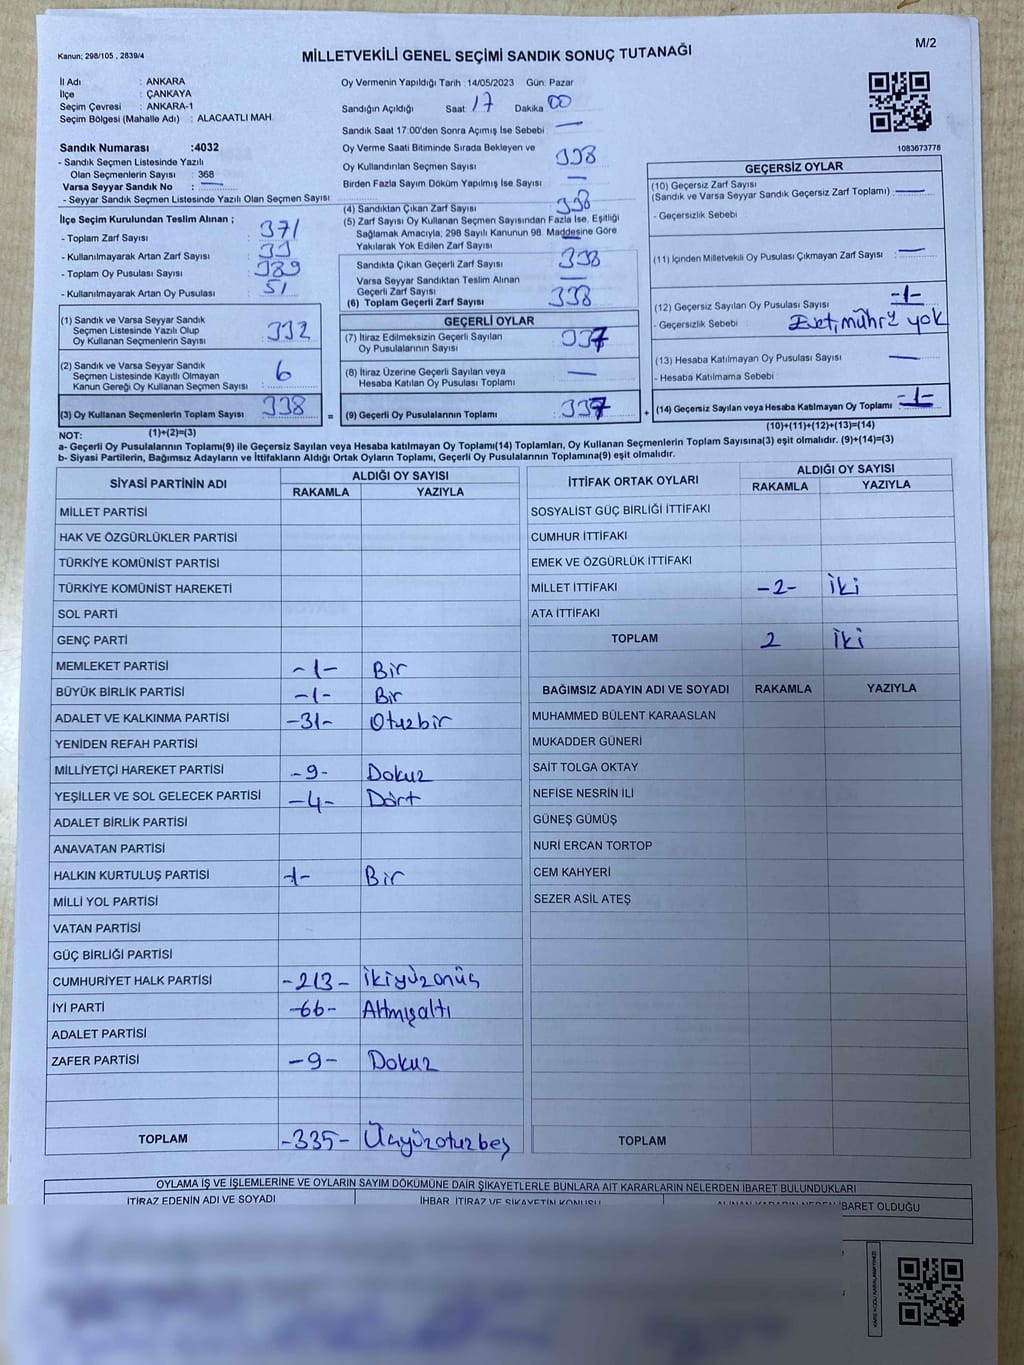 Kanun: 298/105 , 2839/4
MİLLETVEKİLİ GENEL SEÇİMİ SANDIK SONUÇ TUTANAĞI
M/2
İl Adı : ANKARA
İlçe : ÇANKAYA
Seçim Çevresi : ANKARA-1
Seçim Bölgesi (Mahalle Adı) : ALACAATLI MAH.
Sandık Numarası :4032
- Sandık Seçmen Listesinde Yazılı
Olan Seçmenlerin Sayısı : 368
Varsa Seyyar Sandık No : —
- Seyyar Sandık Seçmen Listesinde Yazılı Olan Seçmen Sayısı
İlçe Seçim Kurulundan Teslim Alınan ;
- Toplam Zarf Sayısı 371
- Kullanılmayarak Artan Zarf Sayısı 33
- Toplam Oy Pusulası Sayısı 389
- Kullanılmayarak Artan Oy Pusulası 51
(1) Sandık ve Varsa Seyyar Sandık
Seçmen Listesinde Yazılı Olup
Oy Kullanan Seçmenlerin Sayısı 332
(2) Sandık ve Varsa Seyyar Sandık
Seçmen Listesinde Kayıtlı Olmayan
Kanun Gereği Oy Kullanan Seçmen Sayısı 6
(3) Oy Kullanan Seçmenlerin Toplam Sayısı 338
(1)+(2)=(3)
Oy Vermenin Yapıldığı Tarih :14/05/2023 Gün: Pazar
Sandığın Açıldığı Saat: 17 Dakika 00
Sandık Saat 17:00'den Sonra Açımış İse Sebebi : —
Oy Verme Saati Bitiminde Sırada Bekleyen ve
Oy Kullandırılan Seçmen Sayısı 338
Birden Fazla Sayım Döküm Yapılmış İse Sayısı —
(4) Sandıktan Çıkan Zarf Sayısı 338
(5) Zarf Sayısı Oy Kullanan Seçmen Sayısından Fazla İse, Eşitliği
Sağlamak Amacıyla; 298 Sayılı Kanunun 98. Maddesine Göre
Yakılarak Yok Edilen Zarf Sayısı —
Sandıkta Çıkan Geçerli Zarf Sayısı 338
Varsa Seyyar Sandıktan Teslim Alınan
Geçerli Zarf Sayısı —
(6) Toplam Geçerli Zarf Sayısı 338
GEÇERLİ OYLAR
(7) İtiraz Edilmeksizin Geçerli Sayılan
Oy Pusulalarının Sayısı 337
(8) İtiraz Üzerine Geçerli Sayılan veya
Hesaba Katılan Oy Pusulası Toplamı —
= (9) Geçerli Oy Pusulalarının Toplamı 337
1083673778
GEÇERSİZ OYLAR
(10) Geçersiz Zarf Sayısı
(Sandık ve Varsa Seyyar Sandık Geçersiz Zarf Toplamı) : —
- Geçersizlik Sebebi
(11) İçinden Milletvekili Oy Pusulası Çıkmayan Zarf Sayısı —
(12) Geçersiz Sayılan Oy Pusulası Sayısı -1-
- Geçersizlik Sebebi Evet, mührü yok
(13) Hesaba Katılmayan Oy Pusulası Sayısı —
- Hesaba Katılmama Sebebi
+ (14) Geçersiz Sayılan veya Hesaba Katılmayan Oy Toplamı -1-
(10)+(11)+(12)+(13)=(14)
NOT:
a- Geçerli Oy Pusulalarının Toplamı(9) ile Geçersiz Sayılan veya Hesaba katılmayan Oy Toplamı(14) Toplamları, Oy Kullanan Seçmenlerin Toplam Sayısına(3) eşit olmalıdır. (9)+(14)=(3)
b- Siyasi Partilerin, Bağımsız Adayların ve İttifakların Aldığı Ortak Oyların Toplamı, Geçerli Oy Pusulalarının Toplamına(9) eşit olmalıdır.
SİYASİ PARTİNİN ADI ALDIĞI OY SAYISI
RAKAMLA YAZIYLA
MİLLET PARTİSİ
HAK VE ÖZGÜRLÜKLER PARTİSİ
TÜRKİYE KOMÜNİST PARTİSİ
TÜRKİYE KOMÜNİST HAREKETİ
SOL PARTİ
GENÇ PARTİ
MEMLEKET PARTİSİ -1- Bir
BÜYÜK BİRLİK PARTİSİ -1- Bir
ADALET VE KALKINMA PARTİSİ -31- Otuzbir
YENİDEN REFAH PARTİSİ
MİLLİYETÇİ HAREKET PARTİSİ -9- Dokuz
YEŞİLLER VE SOL GELECEK PARTİSİ -4- Dört
ADALET BİRLİK PARTİSİ
ANAVATAN PARTİSİ
HALKIN KURTULUŞ PARTİSİ -1- Bir
MİLLİ YOL PARTİSİ
VATAN PARTİSİ
GÜÇ BİRLİĞİ PARTİSİ
CUMHURİYET HALK PARTİSİ -213- İkiyüzonüç
İYİ PARTİ -66- Altmışaltı
ADALET PARTİSİ
ZAFER PARTİSİ -9- Dokuz
TOPLAM -335- Üçyüzotuzbeş
İTTİFAK ORTAK OYLARI ALDIĞI OY SAYISI
RAKAMLA YAZIYLA
SOSYALİST GÜÇ BİRLİĞİ İTTİFAKI
CUMHUR İTTİFAKI
EMEK VE ÖZGÜRLÜK İTTİFAKI
MİLLET İTTİFAKI -2- İki
ATA İTTİFAKI
TOPLAM 2 İki
BAĞIMSIZ ADAYIN ADI VE SOYADI RAKAMLA YAZIYLA
MUHAMMED BÜLENT KARAASLAN
MUKADDER GÜNERİ
SAİT TOLGA OKTAY
NEFİSE NESRİN İLİ
GÜNEŞ GÜMÜŞ
NURİ ERCAN TORTOP
CEM KAHYERİ
SEZER ASİL ATEŞ
TOPLAM
OYLAMA İŞ VE İŞLEMLERİNE VE OYLARIN SAYIM DÖKÜMÜNE DAİR ŞİKAYETLERLE BUNLARA AİT KARARLARIN NELERDEN İBARET BULUNDUKLARI
İTİRAZ EDENİN ADI VE SOYADI İHBAR, İTİRAZ VE ŞİKAYETİN KONUSU ALINAN KARARIN NEDEN İBARET OLDUĞU